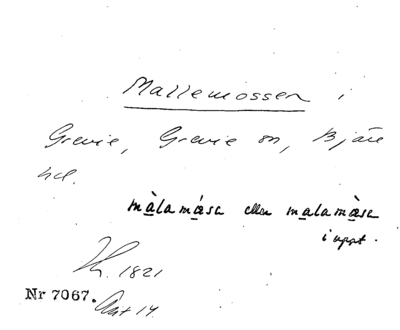 Mallemossen i
Grevie, Grevie sn, Bjäre
hd.
màlamása eller malamàsa
i uppt.
1821
Nr 7067. Avt 14.